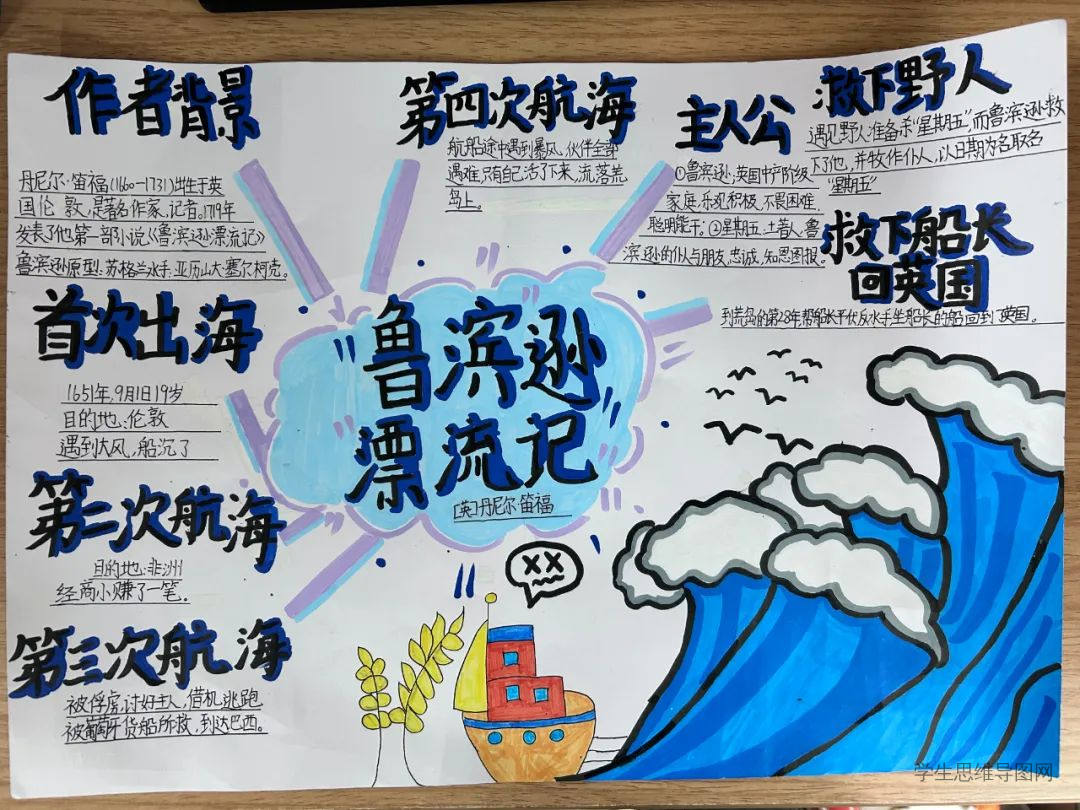 作者背景
丹尼尔·笛福(1660-1731)出生于英
国伦敦,是著名作家,记者。1719年
发表了他第一部小说《鲁滨逊漂流记》
鲁滨逊原型:苏格兰水手:亚历山大·塞尔柯克。
首次出海
1651年,9月1日19岁
目的地:伦敦
遇到大风,船沉了
第二次航海
目的地:非洲
经商小赚了一笔。
第三次航海
被俘虏,讨好主人,借机逃跑
被葡萄牙货船所救,到达巴西。
第四次航海
航船途中遇到暴风,伙伴全部
遇难,只有自己活了下来,流落荒
岛上。
主人公
①鲁滨逊:英国中产阶级
家庭,乐观积极,不畏困难.
聪明能干。②星期五:土著人,鲁
滨逊的仆人与朋友,忠诚,知恩图报。
救下野人
遇见野人准备杀“星期五”,而鲁滨逊救
下了他,并收作仆人,以日期为名取名
“星期五”
救下船长
回英国
到荒岛的第28年,帮船长平伏反水手,坐船长的船回到英国.
鲁滨逊
漂流记
[英]丹尼尔·笛福
学生思维导图网